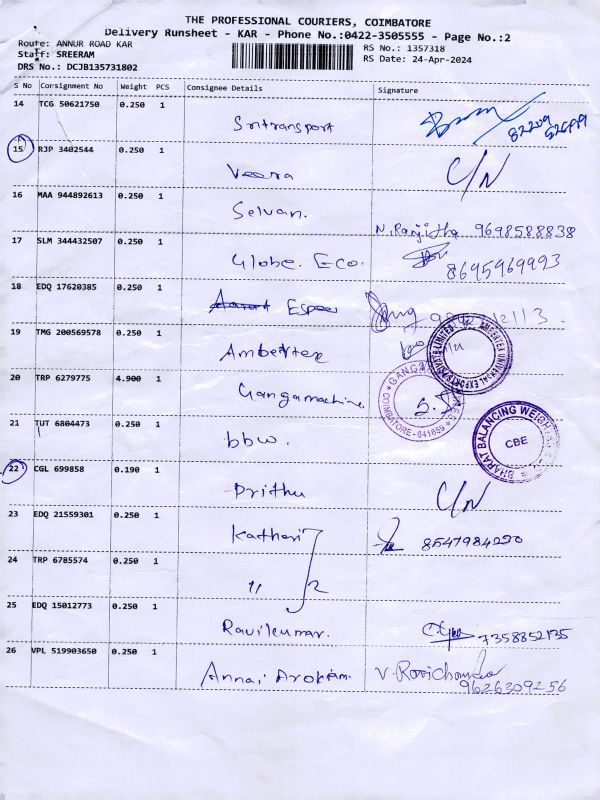 THE PROFESSIONAL COURIERS, COIMBATORE
Delivery Runsheet - KAR - Phone No.:0422-3505555 - Page No.:2
Route: ANNUR ROAD KAR
RS No.: 1357318
Staff: SREERAM
RS Date: 24-Apr-2024
DRS No.: DCJB135731802
S No Consignment No Weight PCS Consignee Details Signature
14 TCG 50621750 0.250 1
Sritransport
15 RJP 3402544 0.250 1
Veera C/N
16 MAA 944892613 0.250 1
Selvan. N. Ranjitha 9698588838
17 SLM 344432507 0.250 1
Globe. Eco. 8695969993
18 EDQ 17620385 0.250 1
19 TMG 200569578 0.250 1
Ambertex
20 TRP 6279775 4.900 1
Gangamachine
COIMBATORE - 641659
21 TUT 6804473 0.250 1
bbw.
BHARAT BALANCING WEIGHTS
CBE
22 CGL 699858 0.190 1
Prithu C/N
23 EDQ 21559301 0.250 1
Katheri 8547984220
24 TRP 6785574 0.250 1
"
25 EDQ 15012773 0.250 1
Ravikumar. 7358852135
26 VPL 519903650 0.250 1
Annai Arokiam. V. Ravichandra
9626309256